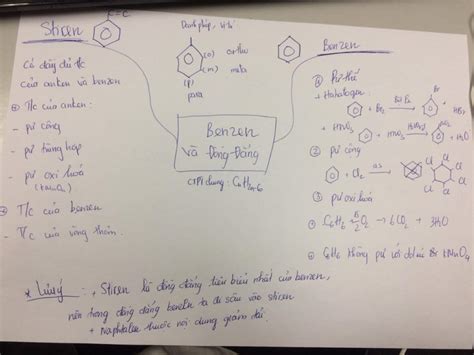 Stiren
C=C
Có đầy đủ t/c
của anken và benzen
① T/c của anken:
- pứ cộng
- pứ trùng hợp
- pứ oxi hoá
(KMnO4)
② T/c của benzen
- T/c của vòng thơm.
Danh pháp, vị trí
(o) ortho
(m) meta
(p)
para
Benzen
và Đồng Đẳng
CTPT dung: CnH2n-6
Benzen
① Pứ thế
+ Halogen:
+ Br2
Br
+ HBr
+ HNO3
+ HNO3
NO2
② pứ cộng
+ Cl2
as
Cl
Cl
Cl
Cl
③ pứ oxi hoá
C6H6 + O2 → 6CO2 + 3H2O
C6H6 không pứ với dd KMnO4
* Lưu ý: + Stiren là đồng đẳng tiêu biểu nhất của benzen,
nên trong đồng đẳng benzen ta đi sâu vào stiren
+ Naphtalen thuộc nội dung giảm tải.